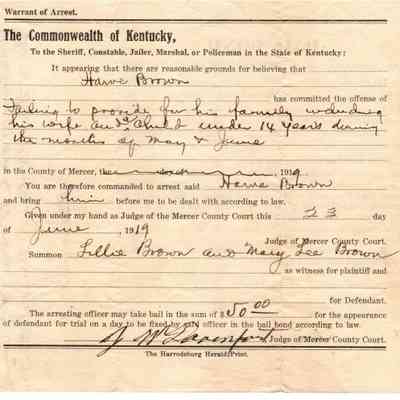 Warrant of Arrest.
The Commonwealth of Kentucky,
To the Sheriff, Constable, Jailer, Marshal, or Policeman in the State of Kentucky:
It appearing that there are reasonable grounds for believing that
Harve Brown
has committed the offense of
Failing to provide for his family including
his wife and child under 14 years during
the months of May & June
in the County of Mercer, the 1919
You are therefore commanded to arrest said Harve Brown
and bring him before me to be dealt with according to law.
Given under my hand as Judge of the Mercer County Court this 23 day
of June, 1919
Judge of Mercer County Court.
Summon Lillie Brown and Mary Lee Brown
as witness for plaintiff and
for Defendant.
The arresting officer may take bail in the sum of $50.00 for the appearance
of defendant for trial on a day to be fixed by said officer in the bail bond according to law.
Judge of Mercer County Court.
The Harrodsburg Herald Print.